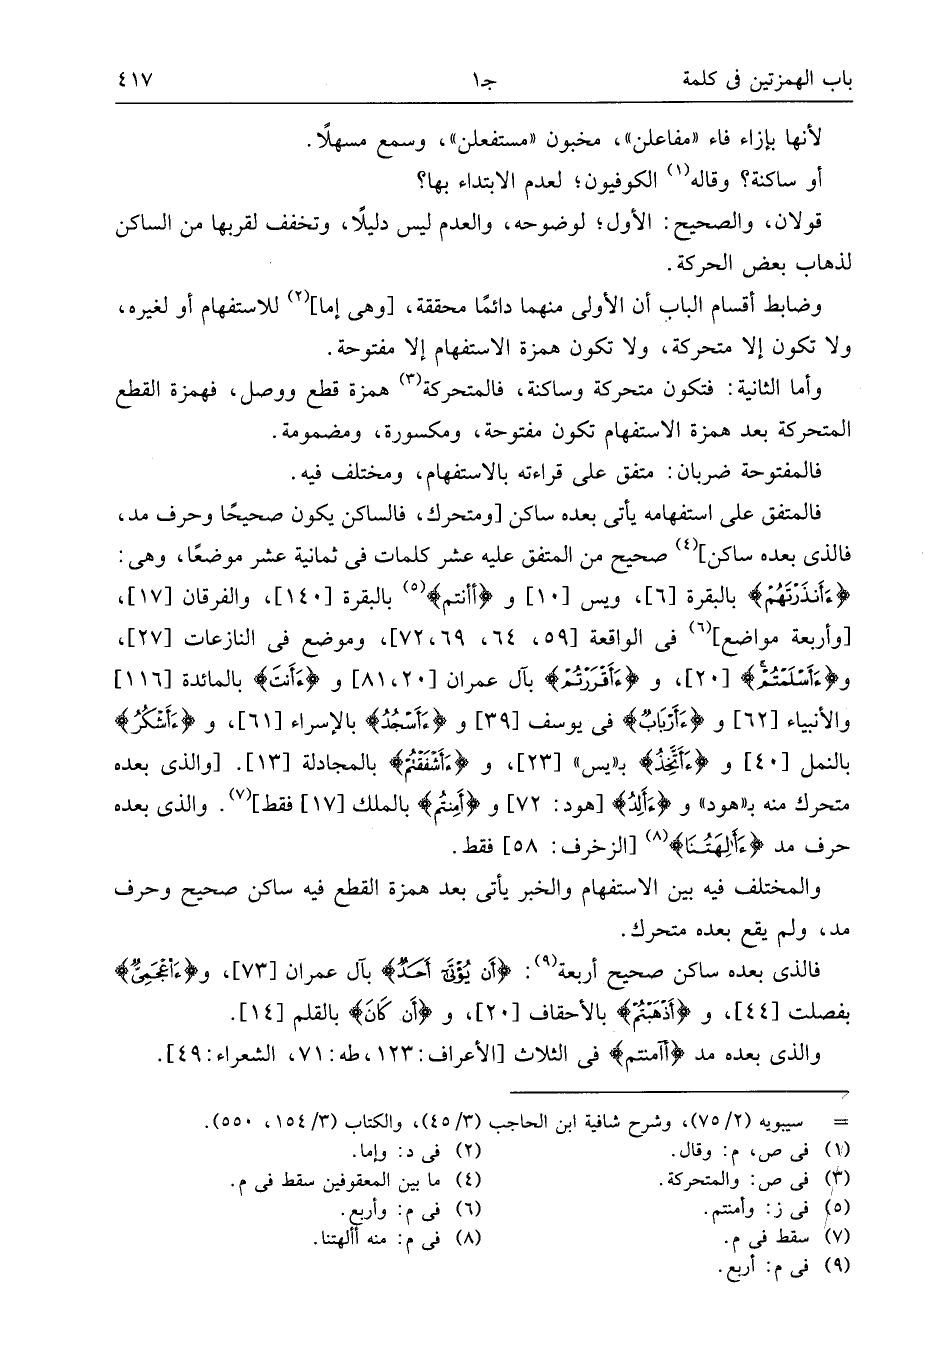 باب الهمزتين فى كلمة جـ١ ٤١٧
لأنها بإزاء فاء «مفاعلن»، مخبون «مستفعلن»، وسمع مسهلًا.
أو ساكنة؟ وقاله(١) الكوفيون؛ لعدم الابتداء بها؟
قولان، والصحيح: الأول؛ لوضوحه، والعدم ليس دليلًا، وتخفف لقربها من الساكن
لذهاب بعض الحركة.
وضابط أقسام الباب أن الأولى منهما دائمًا محققة، [وهى إما](٢) للاستفهام أو لغيره،
ولا تكون إلا متحركة، ولا تكون همزة الاستفهام إلا مفتوحة.
وأما الثانية: فتكون متحركة وساكنة، فالمتحركة(٣) همزة قطع ووصل، فهمزة القطع
المتحركة بعد همزة الاستفهام تكون مفتوحة، ومكسورة، ومضمومة.
فالمفتوحة ضربان: متفق على قراءته بالاستفهام، ومختلف فيه.
فالمتفق على استفهامه يأتى بعده ساكن [ومتحرك، فالساكن يكون صحيحًا وحرف مد،
فالذى بعده ساكن](٤) صحيح من المتفق عليه عشر كلمات فى ثمانية عشر موضعًا، وهى:
﴿ءَأَنذَرْتَهُمْ﴾ بالبقرة [٦]، ويس [١٠] و ﴿أأنتم﴾(٥) بالبقرة [١٤٠]، والفرقان [١٧]،
[وأربعة مواضع](٦) فى الواقعة [٥٩، ٦٤، ٦٩، ٧٢]، وموضع فى النازعات [٢٧]،
و﴿ءَأَسْلَمْتُمْ﴾ [٢٠]، و ﴿ءَأَقْرَرْتُمْ﴾ بآل عمران [٢٠، ٨١] و ﴿ءَأَنتَ﴾ بالمائدة [١١٦]
والأنبياء [٦٢] و ﴿ءَأَرْبَابٌ﴾ فى يوسف [٣٩] و ﴿ءَأَسْجُدُ﴾ بالإسراء [٦١]، و ﴿ءَأَشْكُرُ﴾
بالنمل [٤٠] و ﴿ءَأَتَّخِذُ﴾ بـ«يس» [٢٣]، و ﴿ءَأَشْفَقْتُمْ﴾ بالمجادلة [١٣]. [والذى بعده
متحرك منه بـ«هود» و ﴿ءَأَلِدُ﴾ [هود: ٧٢] و ﴿أَمِنتُم﴾ بالملك [١٧] فقط](٧). والذى بعده
حرف مد ﴿ءَأَٰلِهَتُنَا﴾(٨) [الزخرف: ٥٨] فقط.
والمختلف فيه بين الاستفهام والخبر يأتى بعد همزة القطع فيه ساكن صحيح وحرف
مد، ولم يقع بعده متحرك.
فالذى بعده ساكن صحيح أربعة(٩): ﴿أَن يُؤْتَىٰٓ أَحَدٌ﴾ بآل عمران [٧٣]، و﴿ءَاْعْجَمِىٌّ﴾
بفصلت [٤٤]، و ﴿أَذْهَبْتُمْ﴾ بالأحقاف [٢٠]، و ﴿أَن كَانَ﴾ بالقلم [١٤].
والذى بعده مد ﴿أآمنتم﴾ فى الثلاث [الأعراف: ١٢٣، طه: ٧١، الشعراء: ٤٩].
= سيبويه (٢/ ٧٥)، وشرح شافية ابن الحاجب (٣/ ٤٥)، والكتاب (٣/ ١٥٤، ٥٥٠).
(١) فى ص، م: وقال. (٢) فى د: وإما.
(٣) فى ص: والمتحركة. (٤) ما بين المعقوفين سقط فى م.
(٥) فى ز: وأمنتم. (٦) فى م: وأربع.
(٧) سقط فى م. (٨) فى م: منه أألهتنا.
(٩) فى م: أربع.